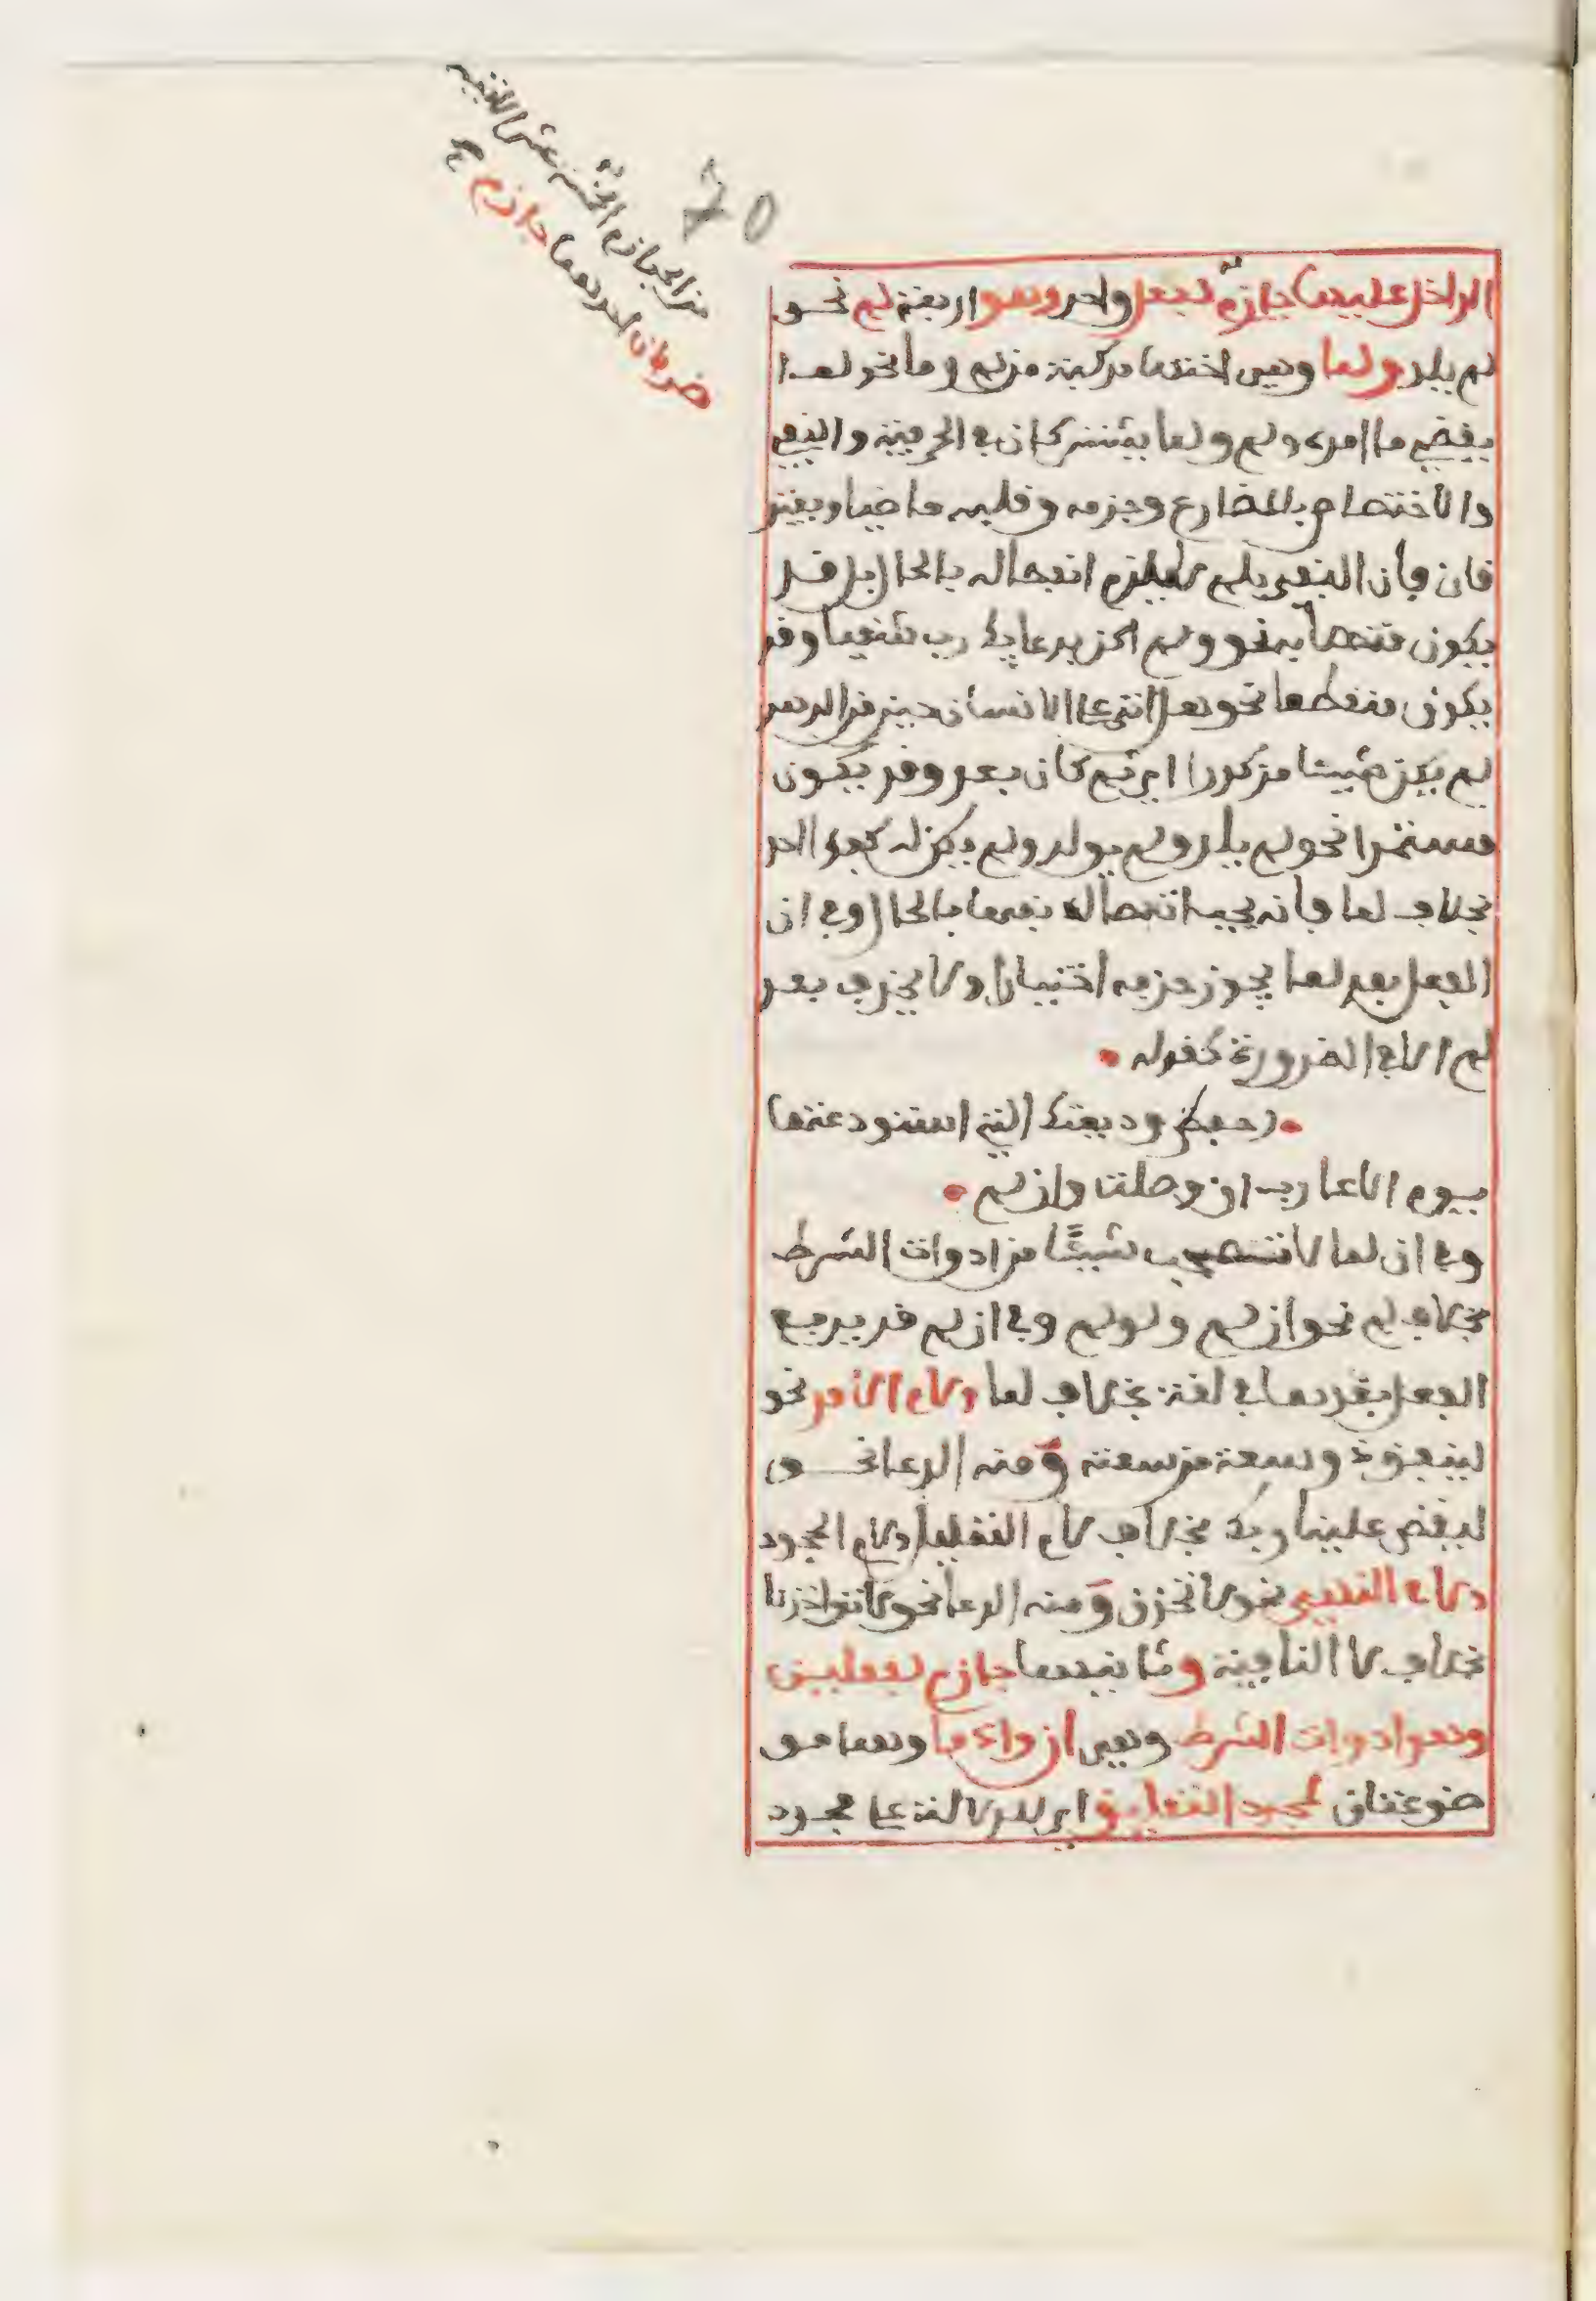 من الجوازم الخمسة عشر اللغية
ضربان احدهما جازم صح
70
الداخل عليها جازم لفعل واحد وهو اربعة لم نحو
لم يلد ولما وهي اختها مركبة من لم وما نحو لمـا
يقض ما امره ولم ولما يشتركان في الحرفية والنفي
والاختصاص بالمضارع وجزمه وقلبه ماضيا ويفتر
قان فان النفي بلم لا يلزم اتصاله بالحال بل قد
يكون متصلا به نحو ولم اكن بدعايك رب شقيا وقد
يكون منقطعا نحو هل اتى على الانسان حين من الدهر
لم يكن شيئا مذكورا اي ثم كان بعد وقد يكون
مستمرا نحو لم يلد ولم يولد ولم يكن له كفوا احد
بخلاف لما فانه يجب اتصال نفيها بالحال وفي ان
الفعل بعد لما يجوز حذفه اختيارا ولا يحذف بعد
لم الا في الضرورة كقوله •
• احفظ وديعتك التي استودعتها
يوم الاعارب ان وصلت وان لم •
وفي ان لما لا تصحب شيئًا من ادوات الشرط
بخلاف لم نحو ان لم ولو لم وفي ان لم قد يرفع
الفعل بعدها في لغة بخلاف لما ولام الأمر نحو
لينفق ذو سعة من سعته وَمنه الدعا نحـو
ليقض علينا ربك بخلاف لام التعليل ولام الجحود
ولا في النهي نحو لا تحزن وَمنه الدعا نحو لا تؤاخذنا
بخلاف لا النافية وثانيهما جازم لفعلين
وهو ادوات الشرط وهي ان واذ ما وهما مو
ضوعتان لمجرد التعليق اي للدلالة على مجرد